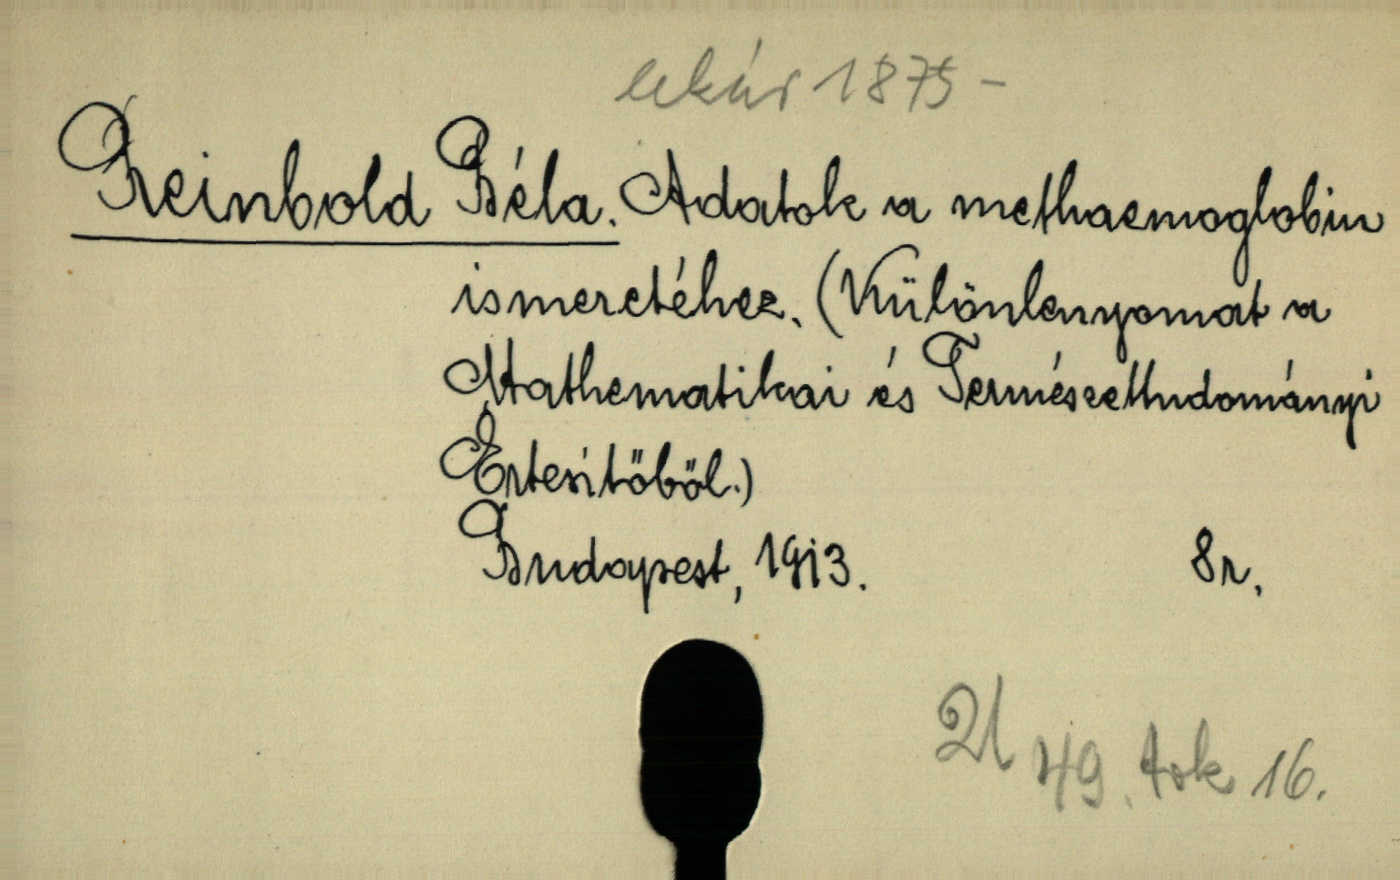 lekár 1875-
Reinbold Béla. Adatok a methaemoglobin
ismeretéhez. (Különlenyomat a
Mathematikai és Természettudományi
Értesítőből.)
Budapest, 1913. 8r.
49. tok 16.